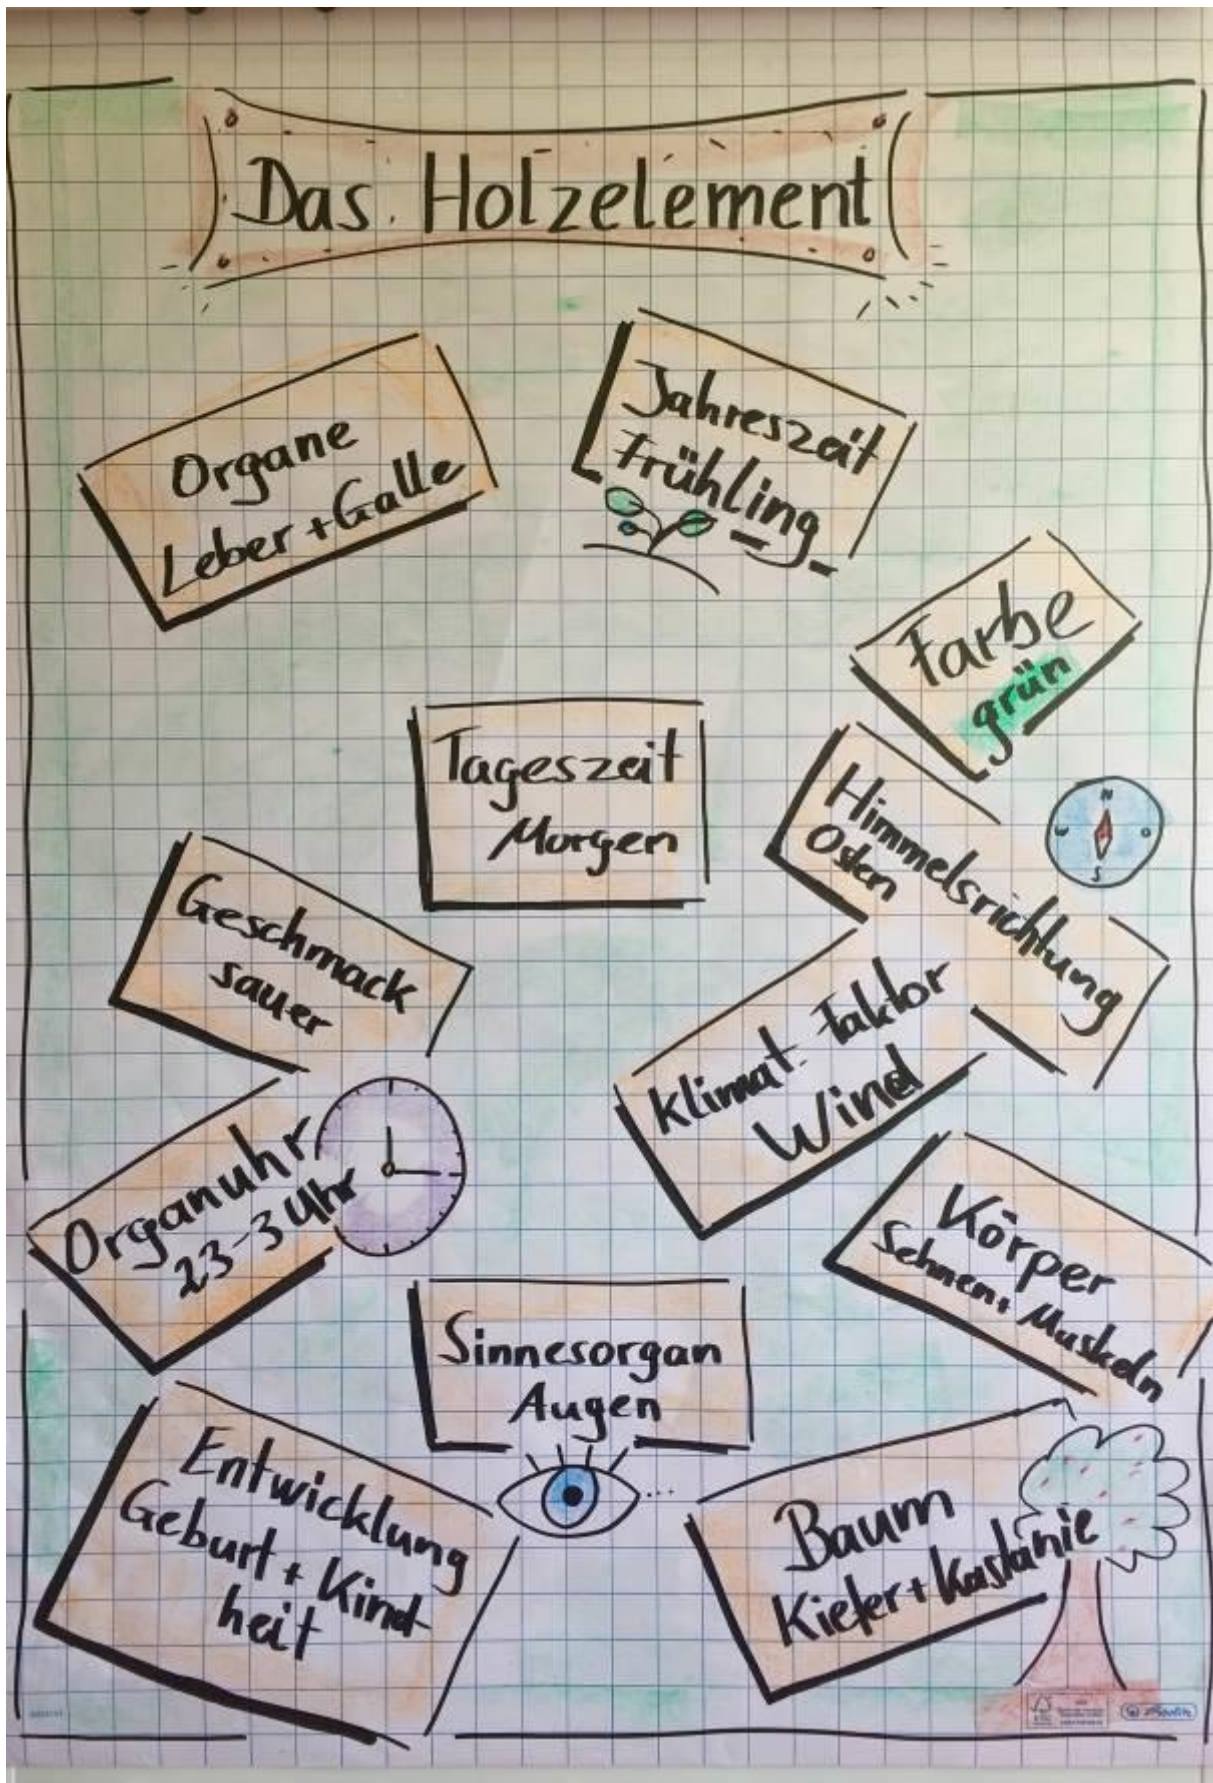 Das Holzelement
Organe
Leber + Galle
Jahreszeit
Frühling
Farbe
grün
Tageszeit
Morgen
Himmelsrichtung
Osten
N
S
O
Geschmack
sauer
Klimat. Faktor
Wind
Organuhr
23-3 Uhr
Körper
Sehnen + Muskeln
Sinnesorgan
Augen
Entwicklung
Geburt + Kind-
heit
Baum
Kiefer + Kastanie